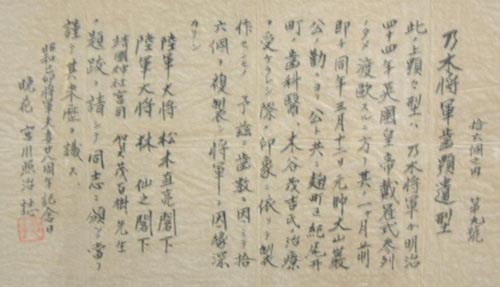 拾六個之内 第九號
乃木將軍齒顎遺型
此ノ上顎ノ型ハ乃木將軍カ明治
四十四年英國皇帝戴冠式参列
ノタメ渡欧スルニ方リ其ノ一ヶ月前
即チ同年三月十二日元帥大山巖
公ノ勸ニヨリ公ト共ニ麹町区紀尾井
町ノ齒科醫 木谷茂吉氏ノ治療
ヲ受ケラレシ際ノ印象ニ依リテ製
作セシモノ 予茲ニ齒数ニ因ミテ拾
六個ヲ複製シ將軍ニ因縁深
カリシ
陸軍大將 松木直亮閣下
陸軍大將 林 仙之閣下
靖國神社宮司 賀茂百樹先生
ノ題跋ヲ請ヒテ同志ニ頒ツ 當リ
謹シテ其来歴ヲ識ス
昭和己卯將軍夫妻廿八周年記念日
晩花 宮川照治 誌